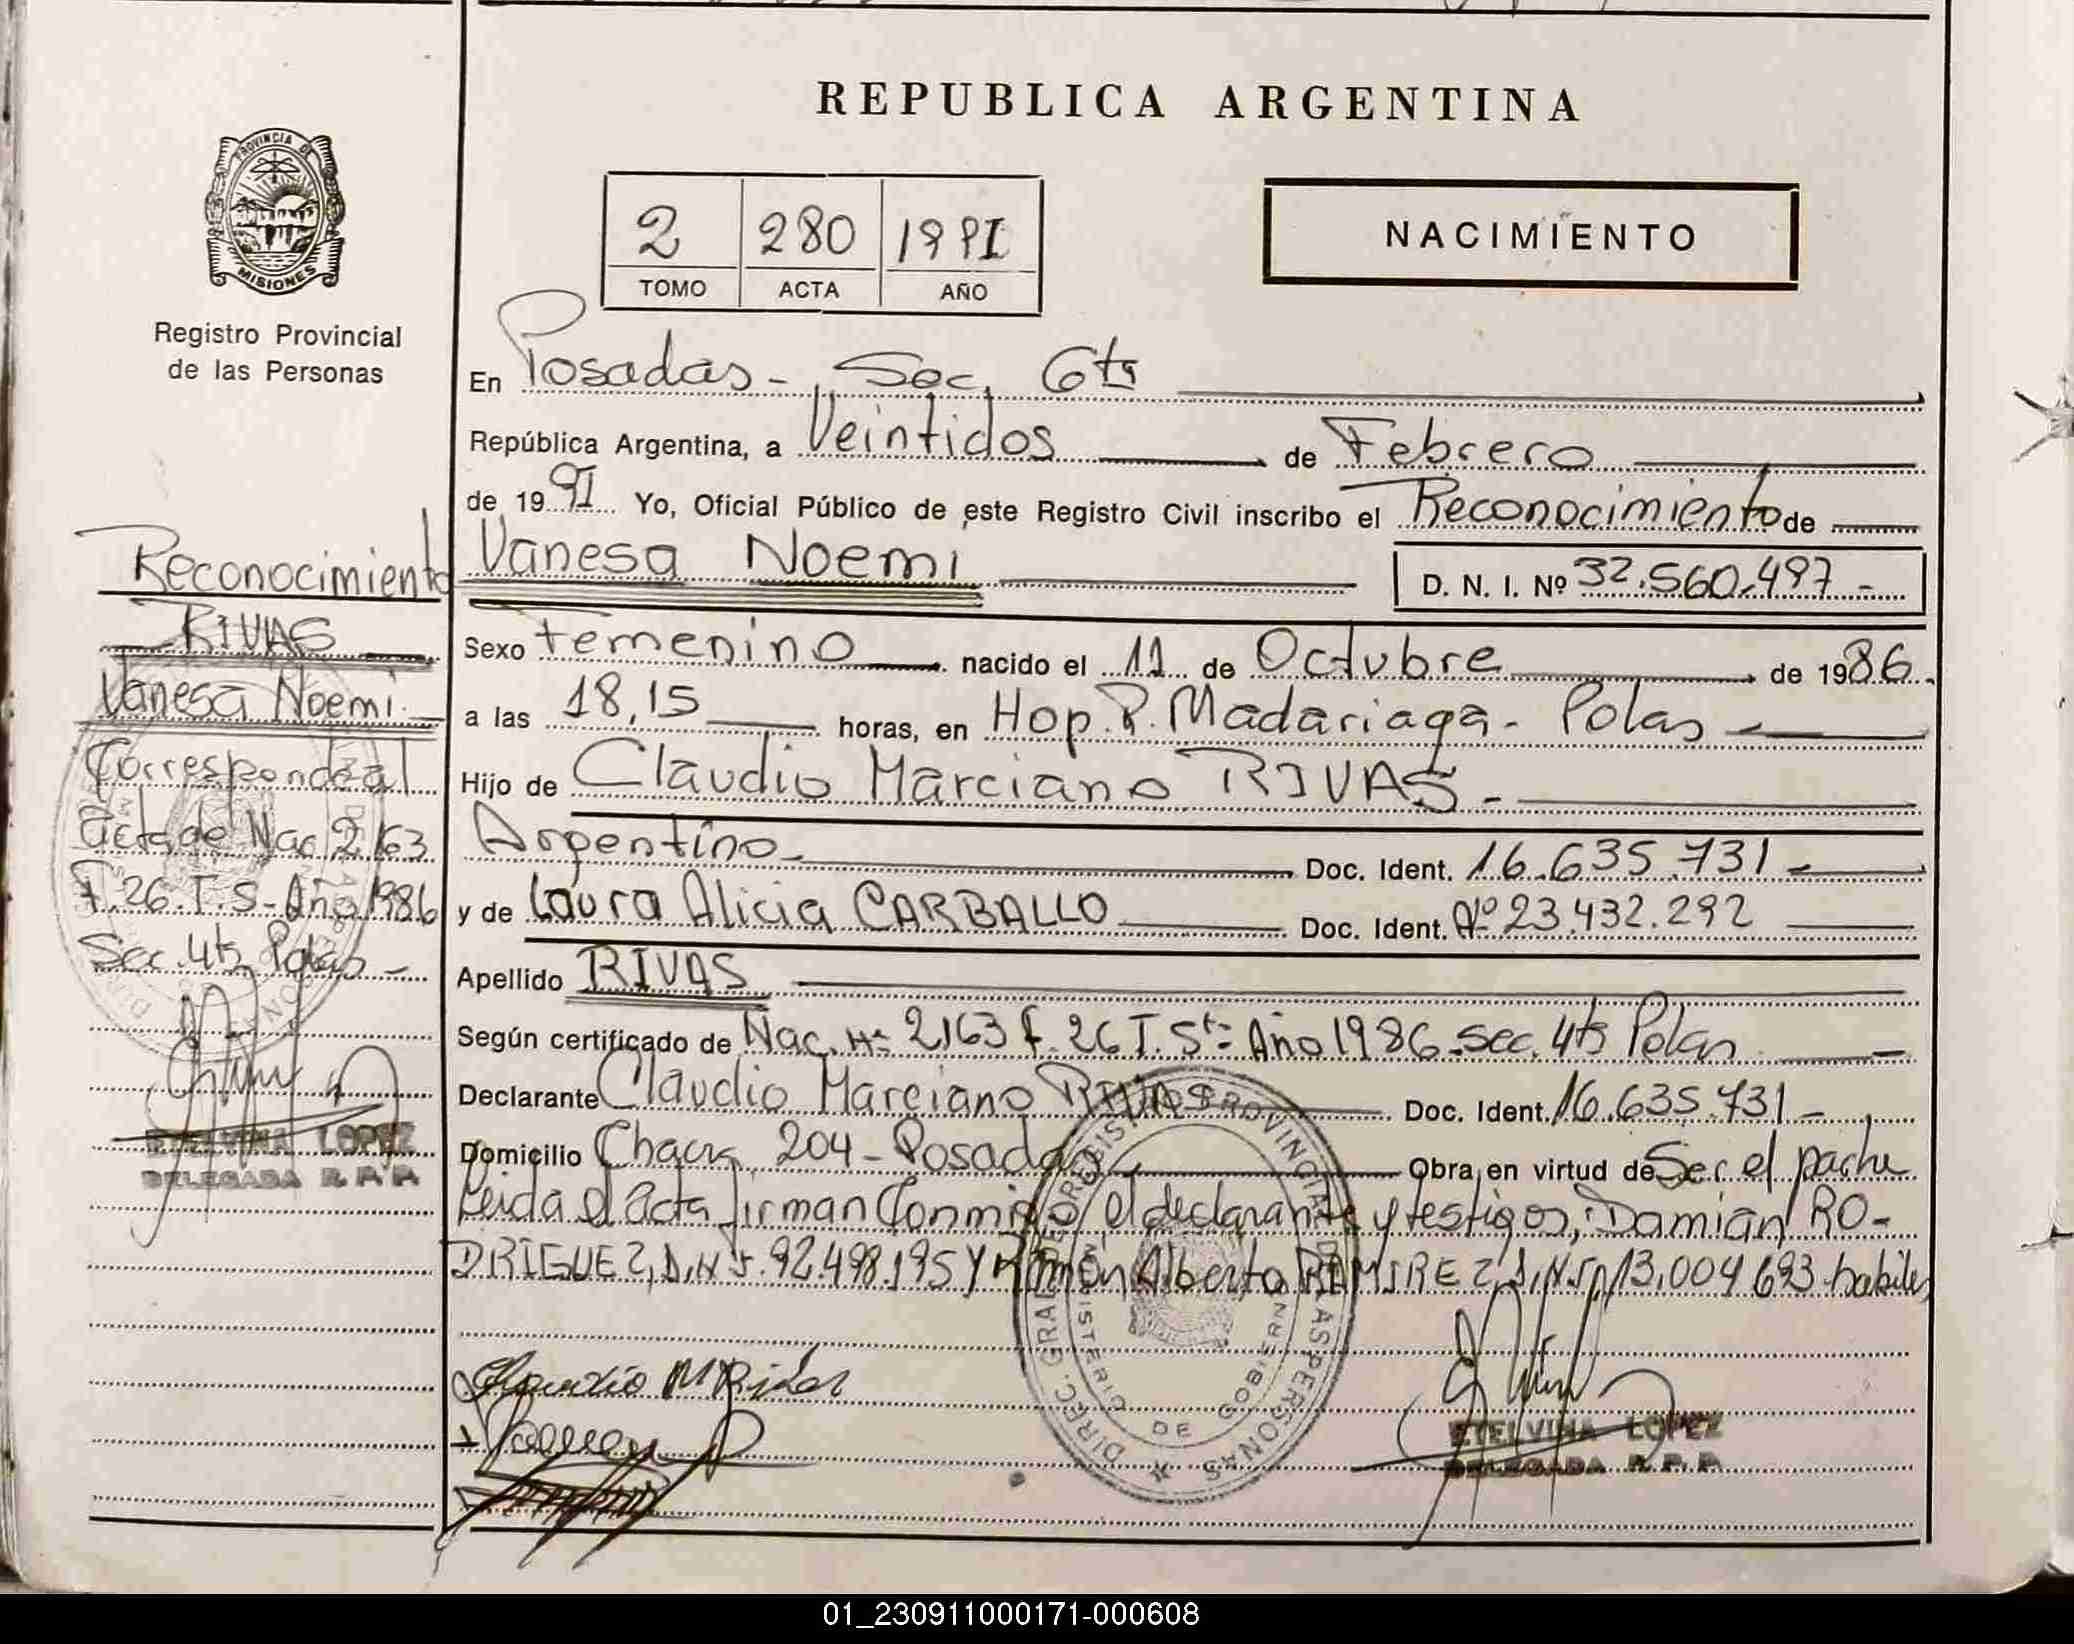 REPUBLICA ARGENTINA
PROVINCIA DE
MISIONES
Registro Provincial
de las Personas
2 280 1991
TOMO ACTA AÑO
NACIMIENTO
En Posadas - Sec. 6ta
República Argentina, a Veintidos de Febrero
de 1991 Yo, Oficial Público de este Registro Civil inscribo el Reconocimiento de
Vanesa Noemi D. N. I. Nº 32.560.497 -
Sexo Femenino nacido el 11 de Octubre de 1986.
a las 18,15 horas, en Hop. R. Madariaga - Polas
Hijo de Claudio Marciano RIVAS -
Argentino - Doc. Ident. 16.635.731 -
y de Laura Alicia CARBALLO Doc. Ident. Nº 23.432.292
Apellido RIVAS
Según certificado de Nac. Nº 2163 f. 26 T. 5tº Año 1986 - Sec. 4ta Polas
Declarante Claudio Marciano RIVAS Doc. Ident. 16.635.731 -
Domicilio Chacra 204 - Posadas Obra en virtud de Ser el padre
Leida el acta firman Conmigo el declarante y testigos; Damian RO-
DRIGUEZ, D.N.I. 92.498.195 Y Ramón Alberto RAMIREZ, D.N.I. 13.004.693 habiles
Claudio M Rivas
ETELVINA LOPEZ
DELEGADA R. P. P.
Reconocimiento
RIVAS
Vanesa Noemi
Corresponde al
acta de Nac. 2163
F. 26. T. 5 - Año 1986
Sec. 4ta Polas -
ETELVINA LOPEZ
DELEGADA R. P. P.
DIREC. GRAL. DE REGISTRO PROVINCIAL DE LAS PERSONAS
MINISTERIO DE GOBIERNO
01_230911000171-000608